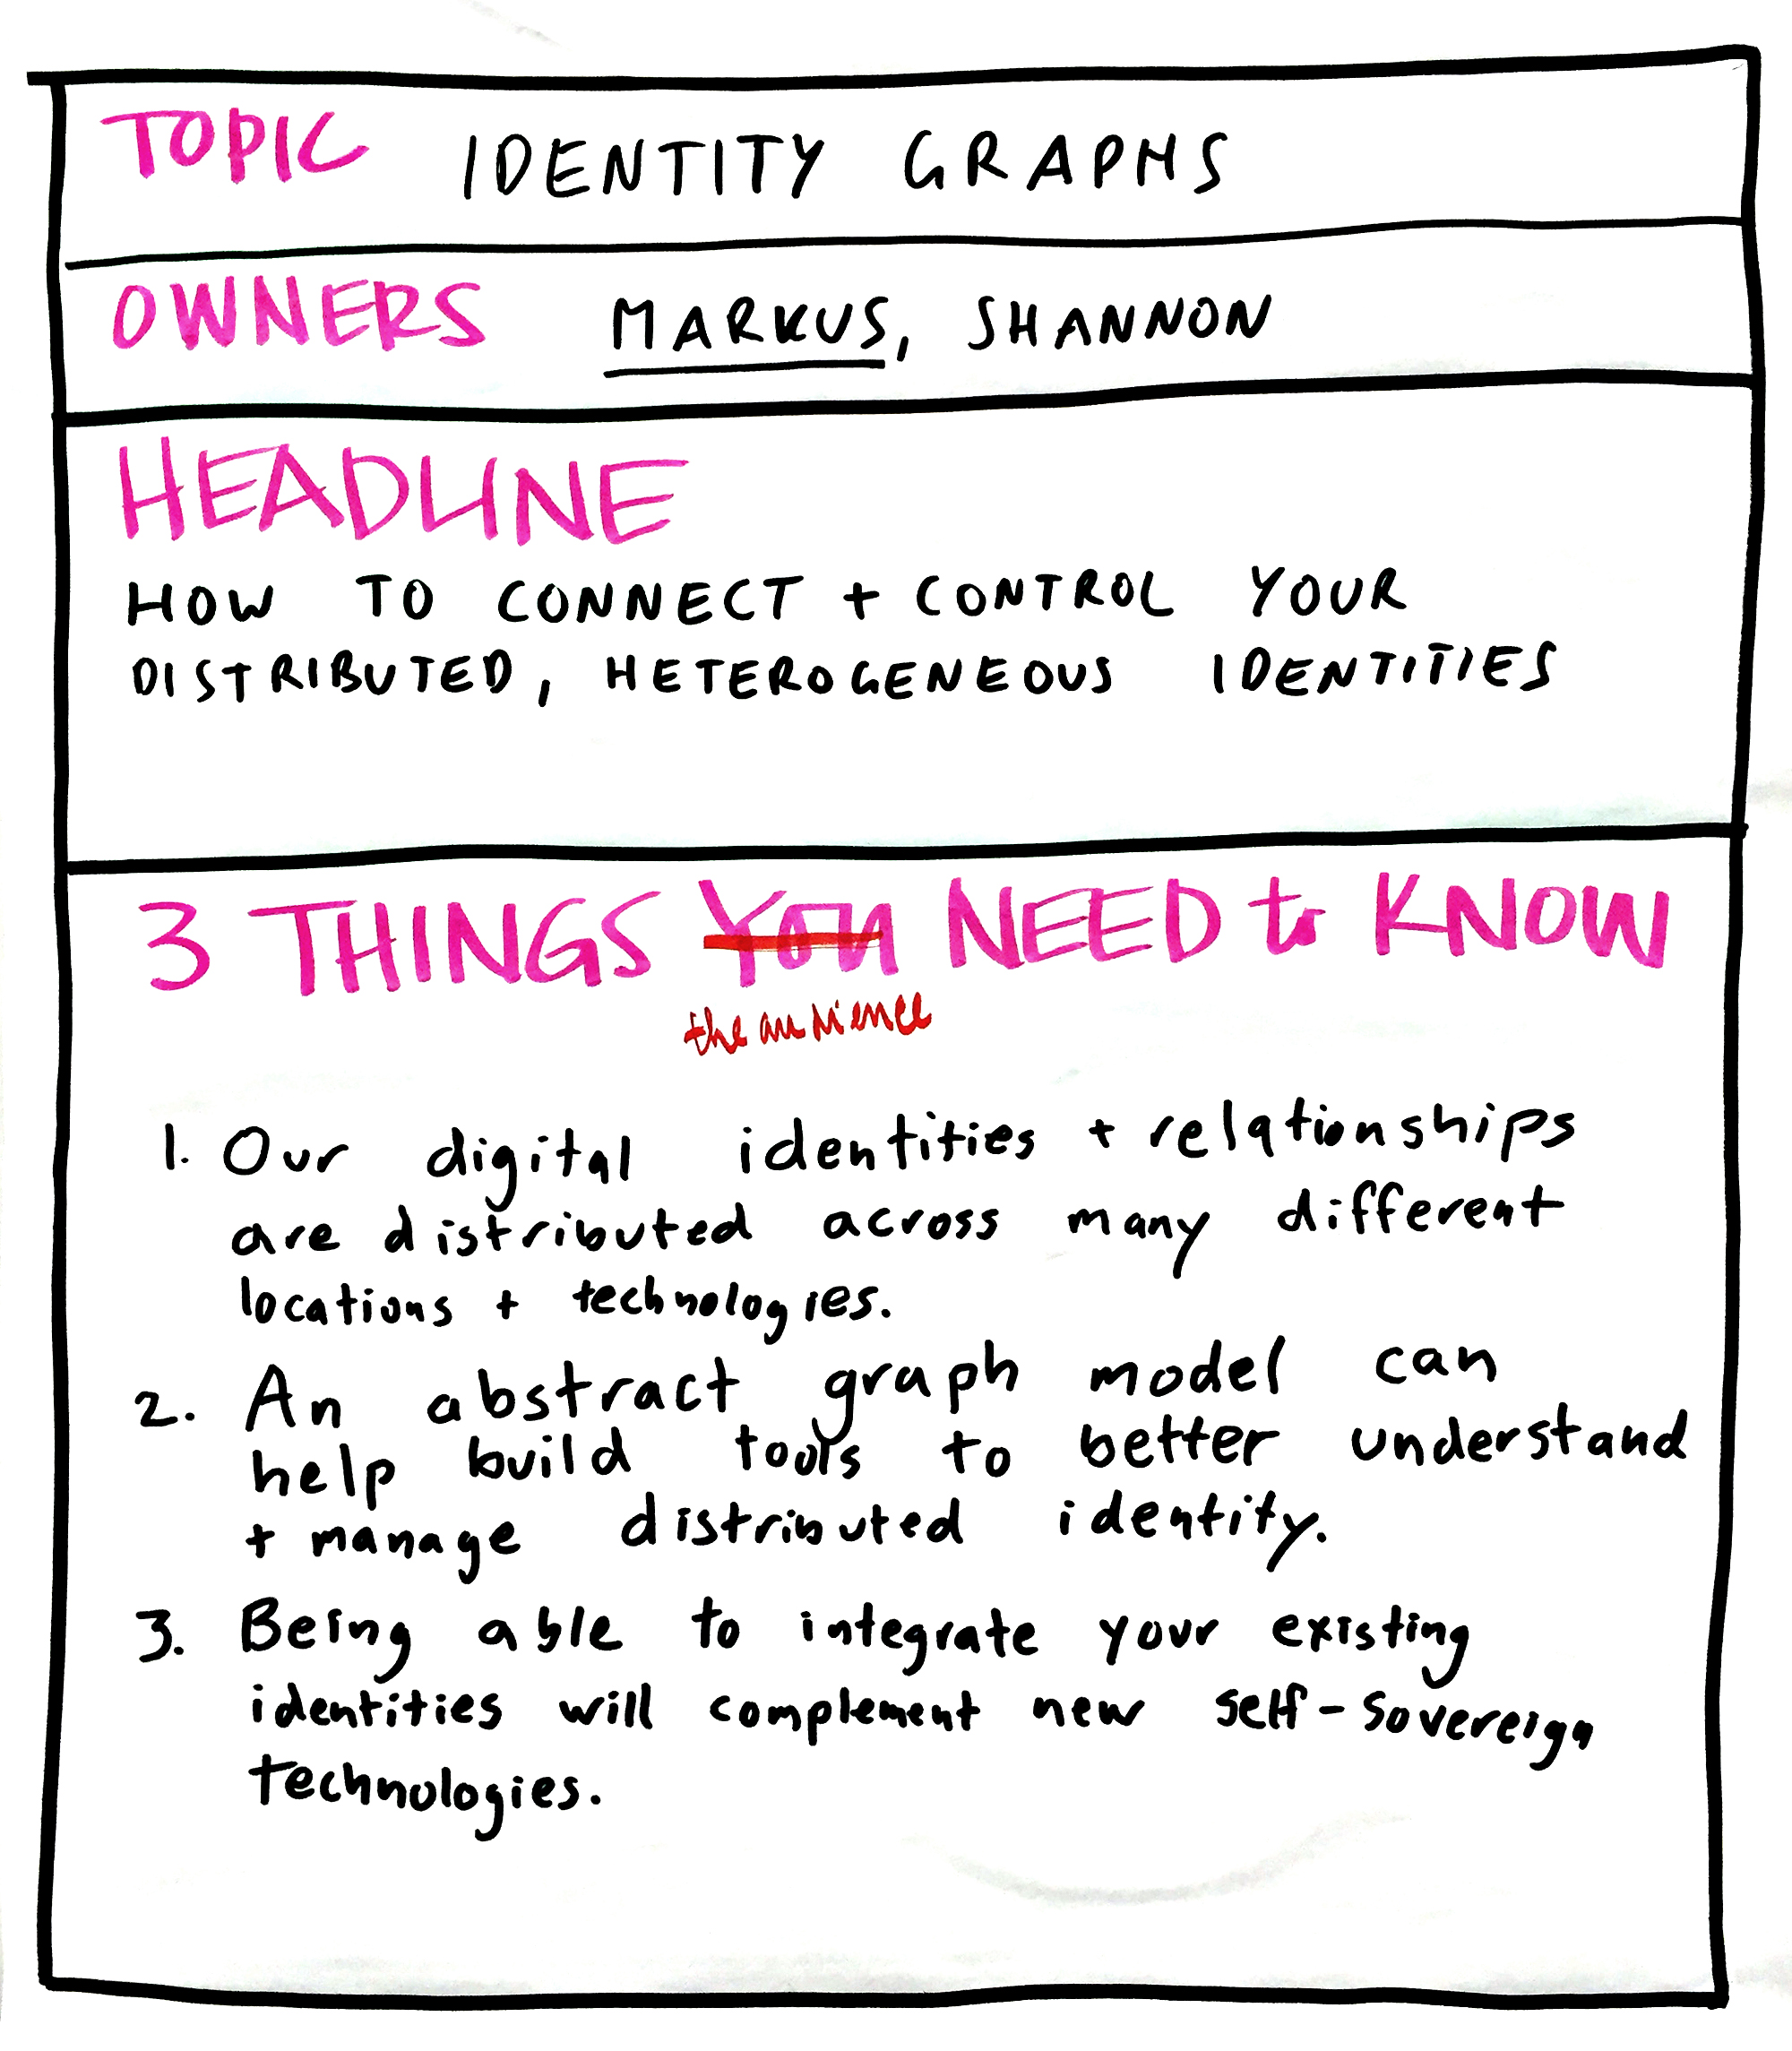 TOPIC IDENTITY GRAPHS
OWNERS MARKUS, SHANNON
HEADLINE
HOW TO CONNECT + CONTROL YOUR
DISTRIBUTED, HETEROGENEOUS IDENTITIES
3 THINGS YOU NEED to KNOW
the audience
1. Our digital identities + relationships
are distributed across many different
locations + technologies.
2. An abstract graph model can
help build tools to better understand
+ manage distributed identity.
3. Being able to integrate your existing
identities will complement new self-sovereign
technologies.